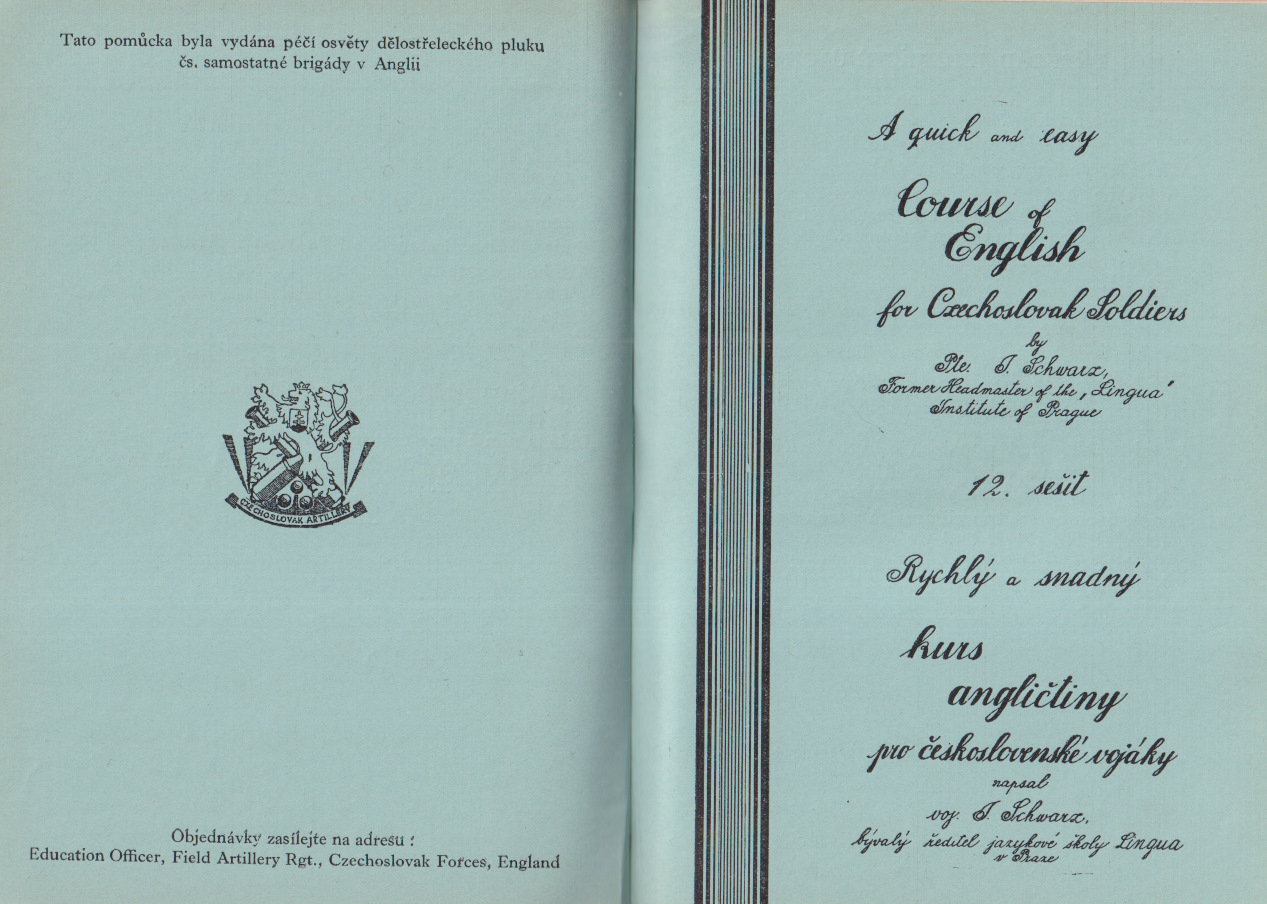 Tato pomůcka byla vydána péčí osvěty dělostřeleckého pluku
čs. samostatné brigády v Anglii
CZECHOSLOVAK ARTILLERY
Objednávky zasílejte na adresu :
Education Officer, Field Artillery Rgt., Czechoslovak Forces, England
A quick and easy
Course of
English
for Czechoslovak Soldiers
by
Pte. J. Schwarz,
Former Headmaster of the „Lingua"
Institute of Prague
12. sešit
Rychlý a snadný
kurs
angličtiny
pro československé vojáky
napsal
voj. J. Schwarz,
bývalý ředitel jazykové školy Lingua
v Praze